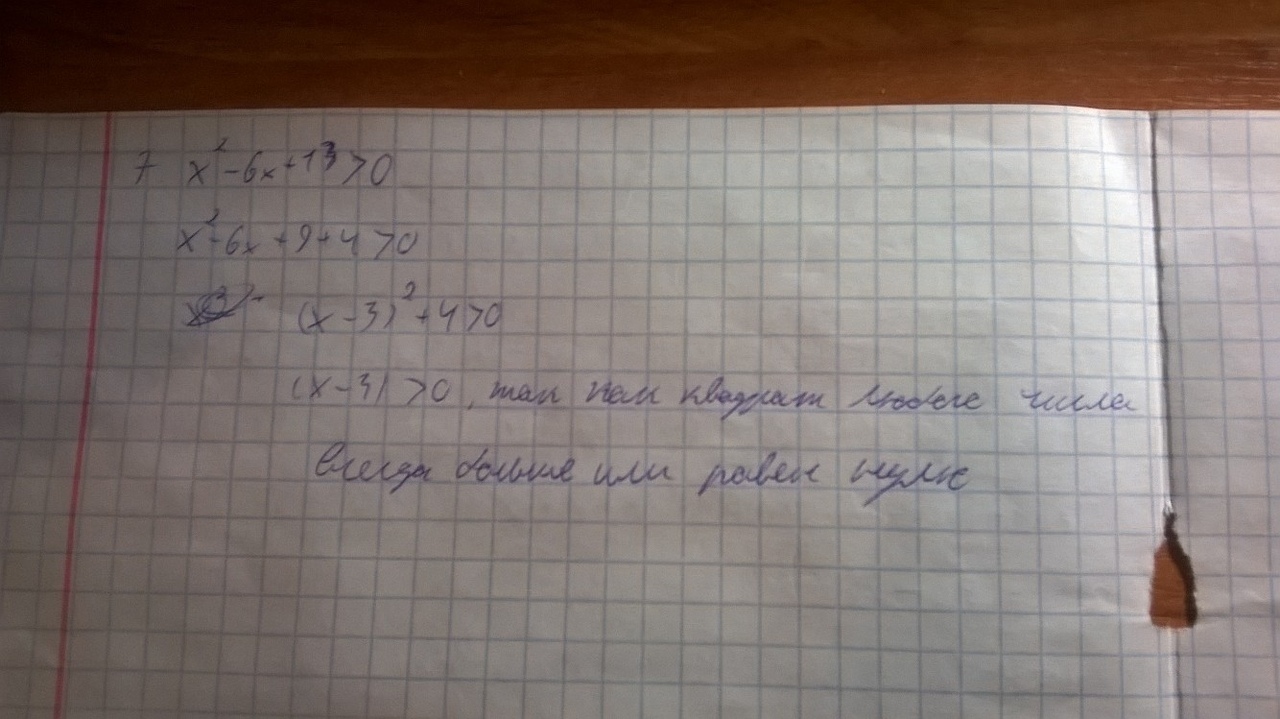 7 x²-6x+13>0
x²-6x+9+4>0
(x-3)²+4>0
(x-3)>0, так как квадрат любого числа
всегда больше или равен нулю